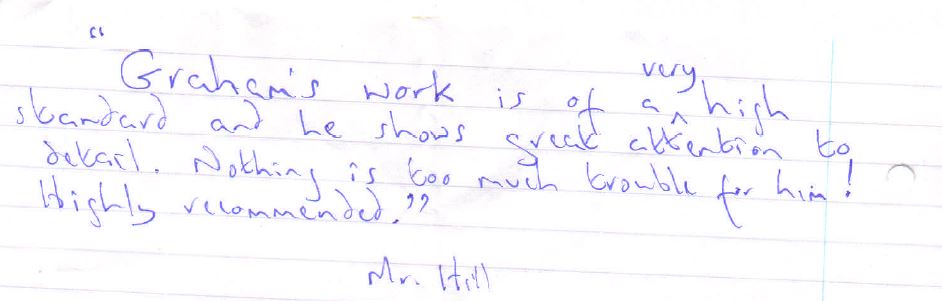 "Graham's work is of a very high
standard and he shows great attention to
detail. Nothing is too much trouble for him!
Highly recommended."
Mr. Hill